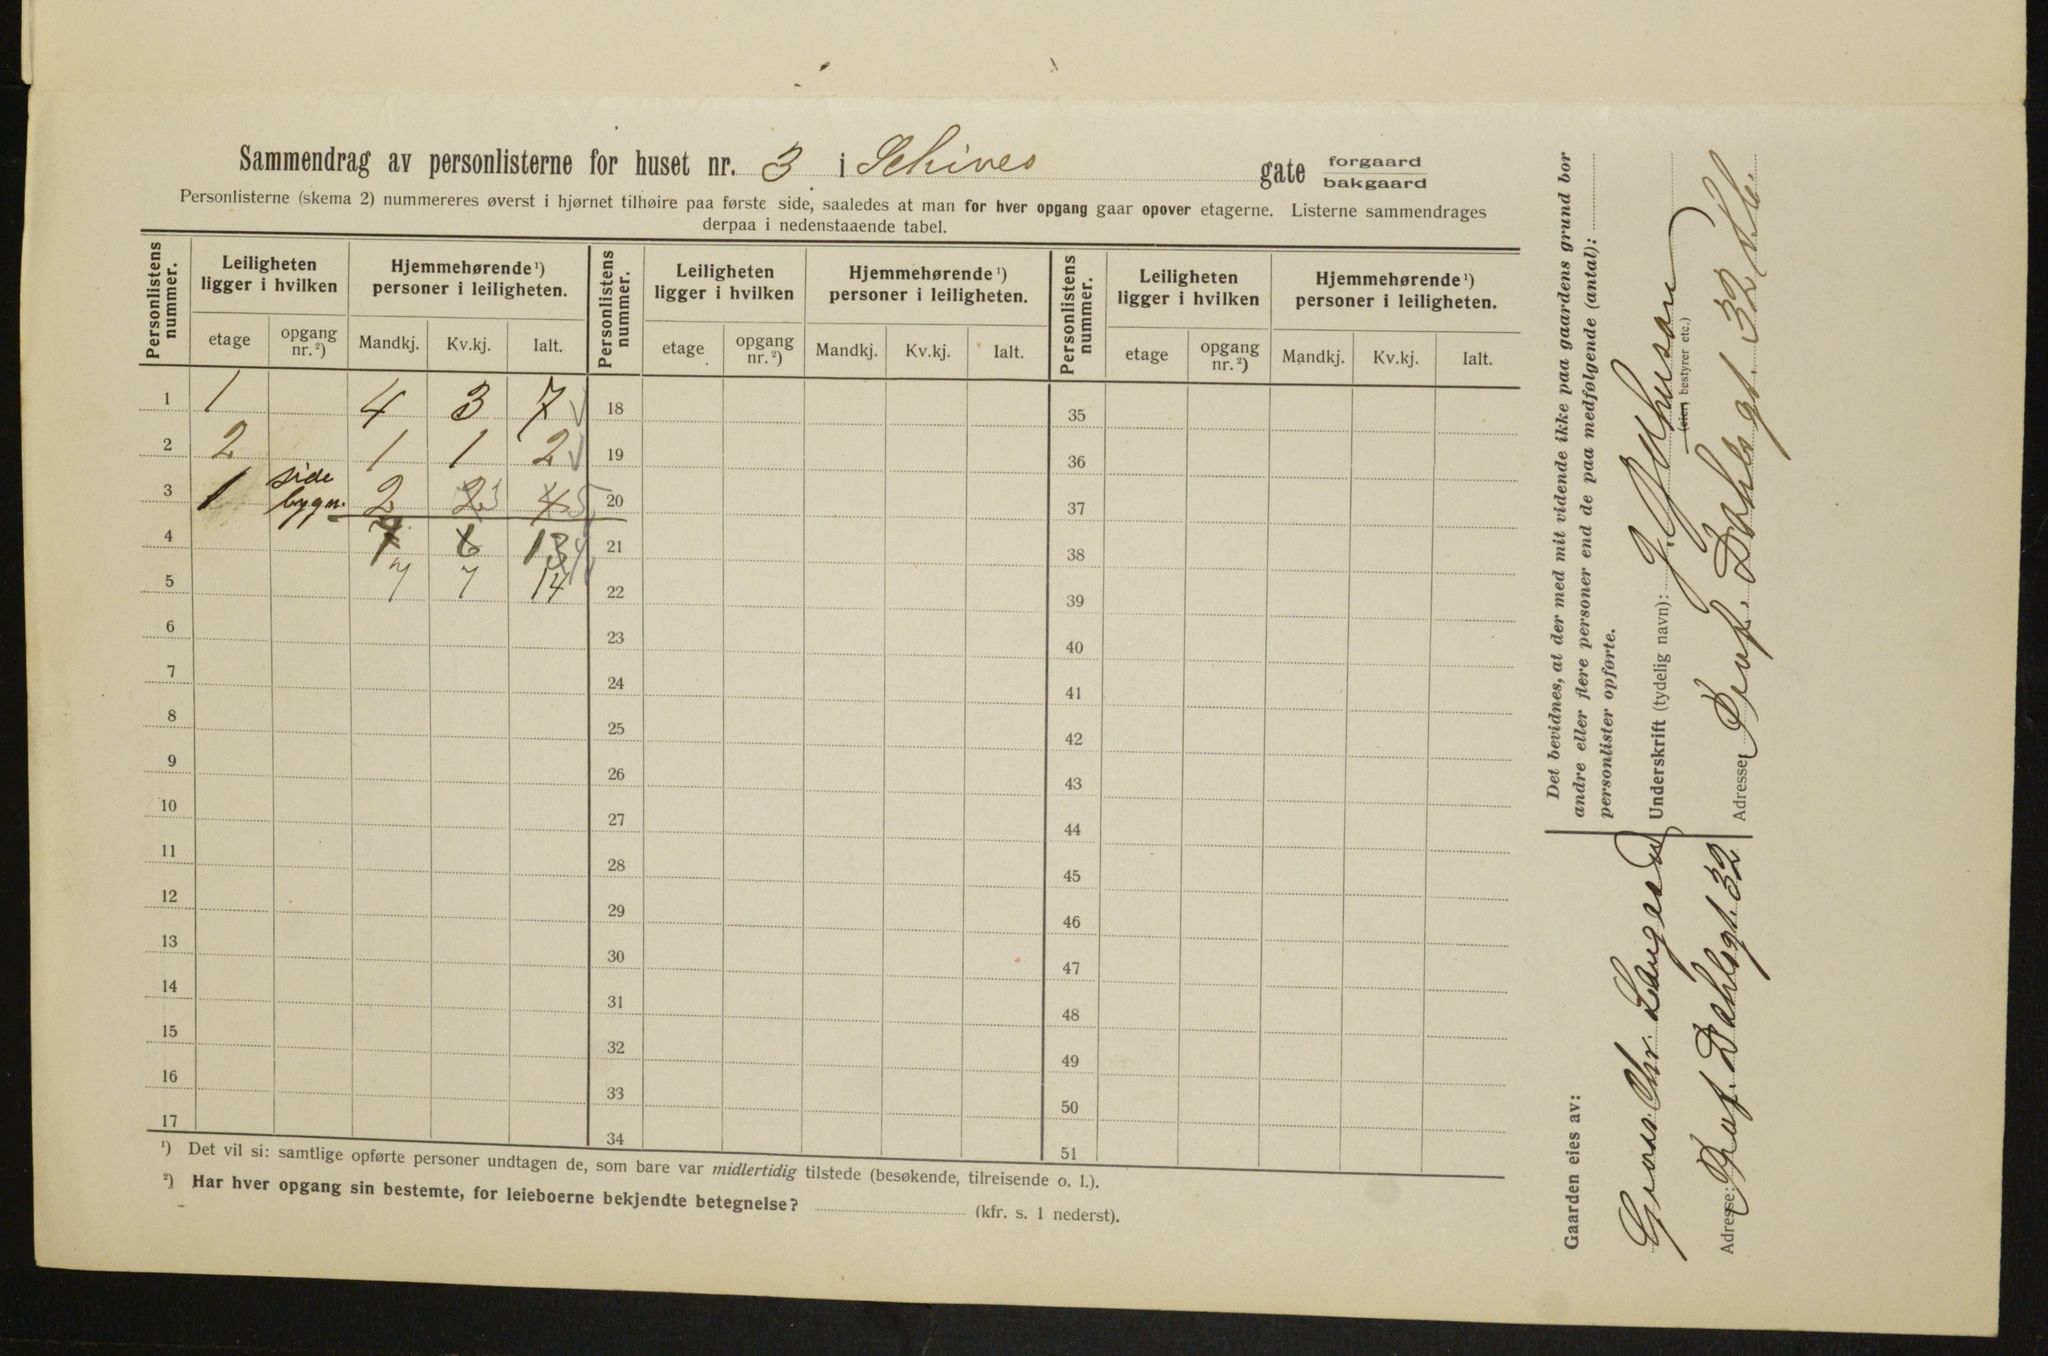 Sammendrag av personlisterne for huset nr. 3 i Schives gate forgaard
bakgaard
Personlisterne (skema 2) nummereres øverst i hjørnet tilhøire paa første side, saaledes at man for hver opgang gaar opover etagerne. Listerne sammendrages
derpaa i nedenstaaende tabel.
Personlistens nummer. Leiligheten ligger i hvilken Hjemmehørende ¹) personer i leiligheten. Personlistens nummer. Leiligheten ligger i hvilken Hjemmehørende ¹) personer i leiligheten. Personlistens nummer. Leiligheten ligger i hvilken Hjemmehørende ¹) personer i leiligheten.
etage opgang nr. ²) Mandkj. Kv.kj. Ialt. etage opgang nr. ²) Mandkj. Kv.kj. Ialt. etage opgang nr. ²) Mandkj. Kv.kj. Ialt.
1 1 4 3 7 18 35
2 2 1 1 2 19 36
3 1 side bygn. 2 2 3 4 5 20 37
4 7 6 13 21 38
5 7 7 14 22 39
6 23 40
7 24 41
8 25 42
9 26 43
10 27 44
11 28 45
12 29 46
13 30 47
14 31 48
15 32 49
16 33 50
17 34 51
¹) Det vil si: samtlige opførte personer undtagen de, som bare var midlertidig tilstede (besøkende, tilreisende o. l.).
²) Har hver opgang sin bestemte, for leieboerne bekjendte betegnelse? (kfr. s. 1 nederst).
Det bevidnes, at der med mit vidende ikke paa gaardens grund bor
andre eller flere personer end de paa medfølgende (antal):
personlister opførte.
Underskrift (tydelig navn):
(eier, bestyrer etc.)
Adresse: Prof. Dahls gt. 32
Gaarden eies av:
Chr. Langaard
Adresse: Prof. Dahlsgt. 32